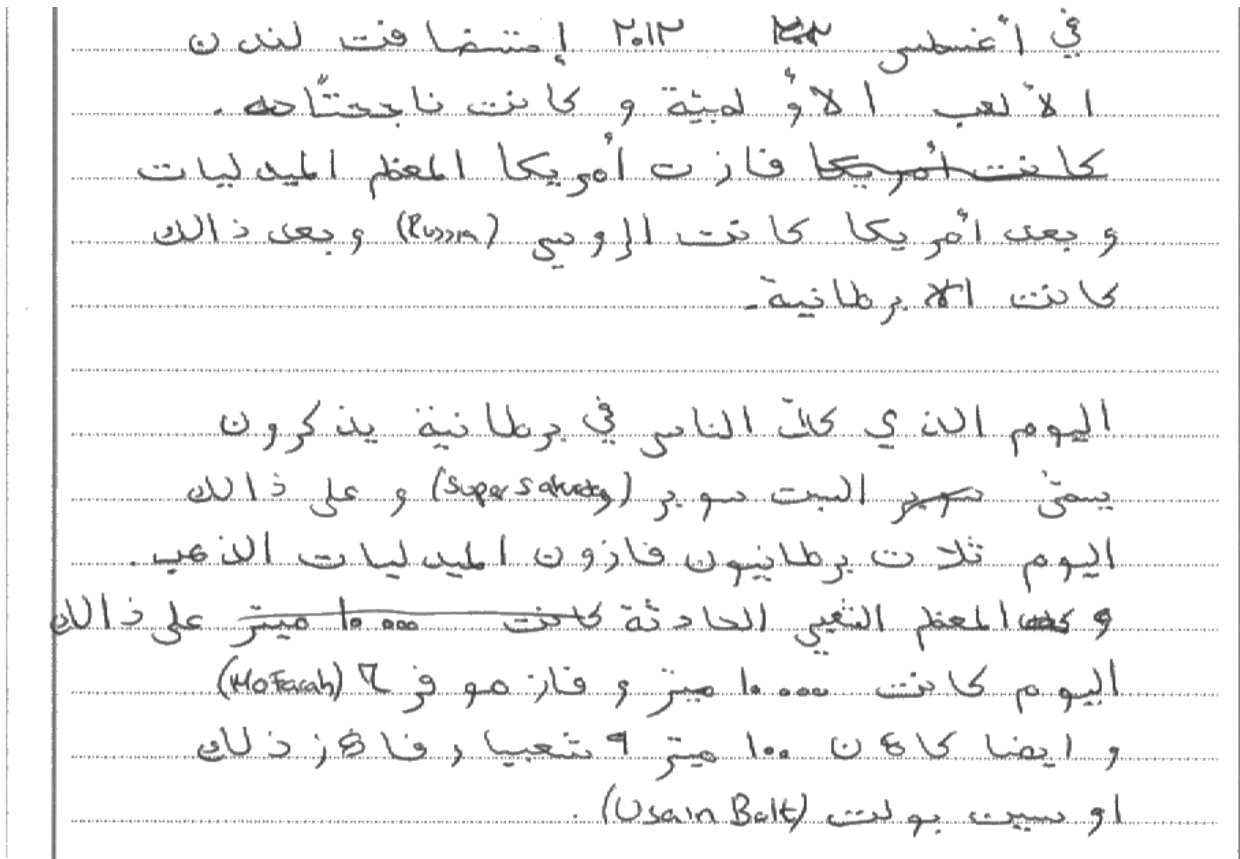 في أغسطس ٢٠١٢ إستضافت لندن
الألعب الأولمبية و كانت ناجحتًاحه.
كانت أمريكا فازت أمريكا المعظم الميدليات
و بعد أمريكا كانت الروسي (Russia) وبعد ذالك
كانت الا برطانية.
اليوم الذي كلّ الناس في برطانية يذكرون
يسمّى سوبر السبت سوبر (Super Saturday) و على ذالك
اليوم ثلاث برطانيون فازون الميدليات الذهب.
و المعظم الحادثة كانت ١٠٠٠٠ ميتر على ذالك
اليوم كانت ١٠٠٠٠ ميتر و فاز مو فرح (Mo Farah)
و ايضا كان ١٠٠ ميتر و فاز ذلك
اوسين بولت (Usain Bolt).